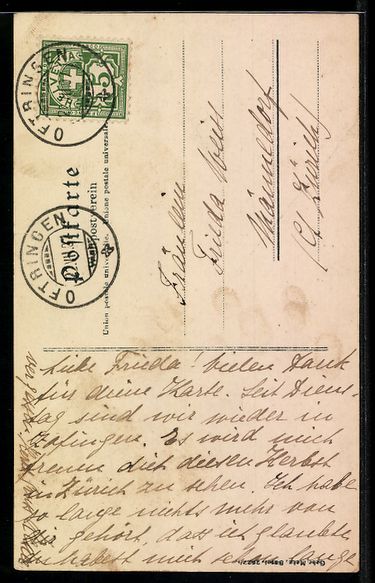 OFTRINGEN
HELVETIA
5
OFTRINGEN
Postkarte
Weltpostverein
Union postale universelle. Unione postale universale
Fräulein
Frieda
Männedorf
Ct. Zürich
Liebe Frieda! vielen Dank
für deine Karte. Seit Diens-
tag sind wir wieder in
Zofingen. Es wird mich
freuen dich diesen Herbst
in Zürich zu sehen. Ich habe
so lange nichts mehr von
dir gehört, dass ich glaubte
du habest mich schon lange
Gebr. Metz, Basel